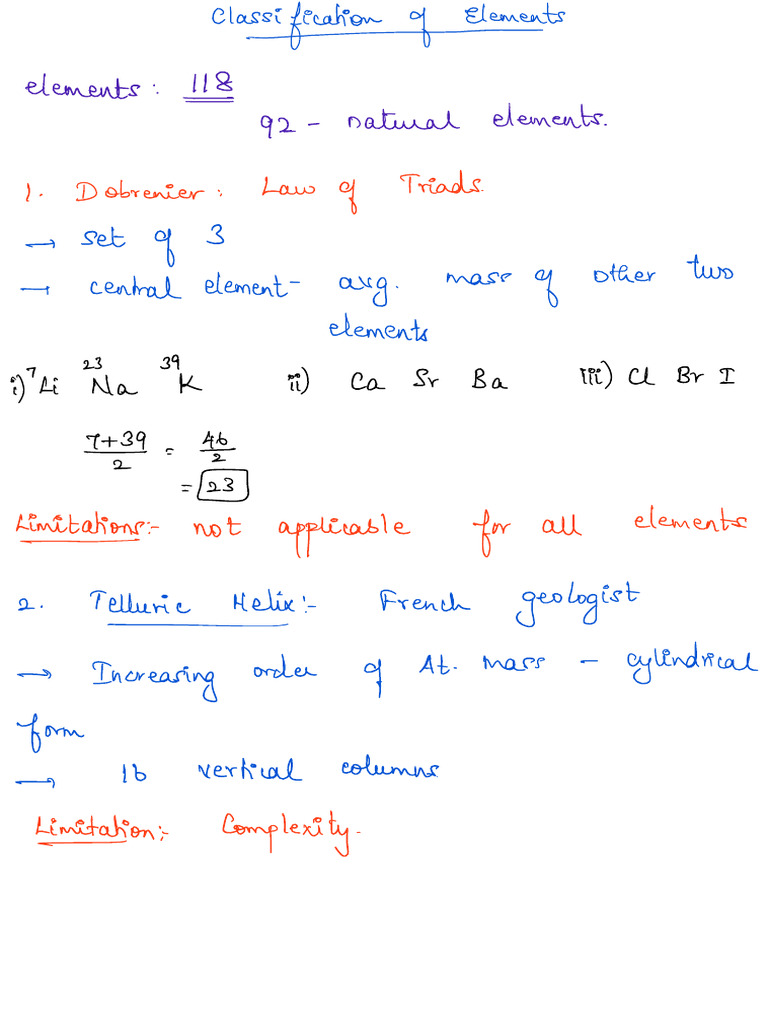 Classification of Elements
elements: 118
92 - natural elements.
1. Dobrenier: Law of Triads.
→ set of 3
→ central element - avg. mass of other two
elements
i) ⁷Li ²³Na ³⁹K ii) Ca Sr Ba iii) Cl Br I
7+39/2 = 46/2
= 23
Limitations:- not applicable for all elements
2. Telluric Helix:- French geologist
→ Increasing order of At. mass - cylindrical
form
→ 16 vertical columns
Limitation:- Complexity.